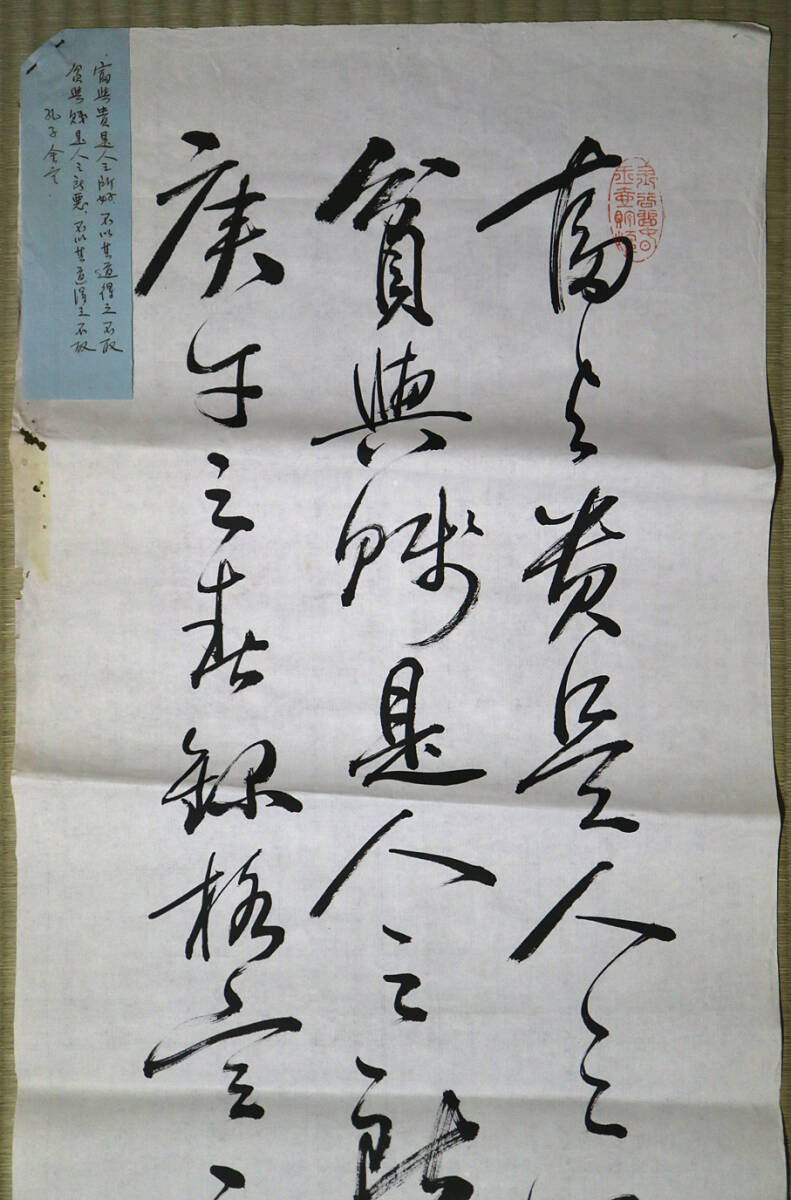 富与貴是人之
貧與賤是人之所
庚午之春録格言
富與貴是人之所好 不以其道得之不取
貧與賤是人之所悪、不以其道得之不取
孔子金言